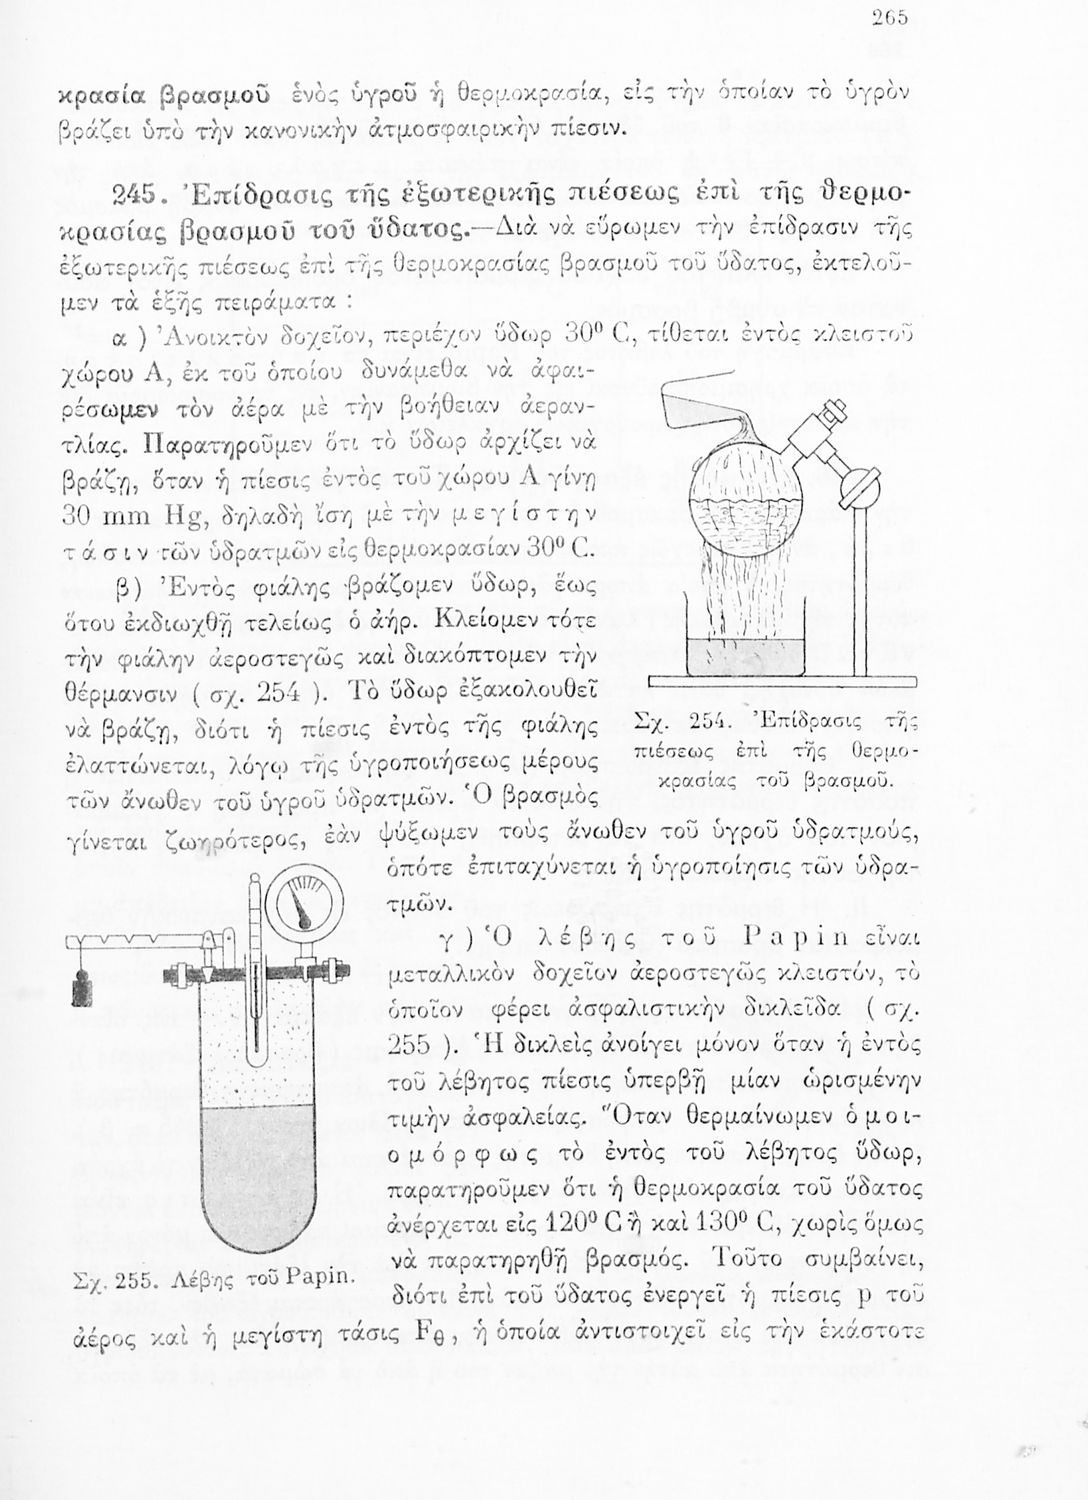 265
κρασία βρασμοῦ ἑνὸς ὑγροῦ ἡ θερμοκρασία, εἰς τὴν ὁποίαν τὸ ὑγρὸν
βράζει ὑπὸ τὴν κανονικὴν ἀτμοσφαιρικὴν πίεσιν.
245. Ἐπίδρασις τῆς ἐξωτερικῆς πιέσεως ἐπὶ τῆς θερμο-
κρασίας βρασμοῦ τοῦ ὕδατος.—Διὰ νὰ εὕρωμεν τὴν ἐπίδρασιν τῆς
ἐξωτερικῆς πιέσεως ἐπὶ τῆς θερμοκρασίας βρασμοῦ τοῦ ὕδατος, ἐκτελοῦ-
μεν τὰ ἑξῆς πειράματα :
α ) Ἀνοικτὸν δοχεῖον, περιέχον ὕδωρ 30⁰ C, τίθεται ἐντὸς κλειστοῦ
χώρου Α, ἐκ τοῦ ὁποίου δυνάμεθα νὰ ἀφαι-
ρέσωμεν τὸν ἀέρα μὲ τὴν βοήθειαν ἀεραν-
τλίας. Παρατηροῦμεν ὅτι τὸ ὕδωρ ἀρχίζει νὰ
βράζῃ, ὅταν ἡ πίεσις ἐντὸς τοῦ χώρου Α γίνῃ
30 mm Hg, δηλαδὴ ἴση μὲ τὴν μ ε γ ί σ τ η ν
τ ά σ ι ν τῶν ὑδρατμῶν εἰς θερμοκρασίαν 30⁰ C.
β ) Ἐντὸς φιάλης βράζομεν ὕδωρ, ἕως
ὅτου ἐκδιωχθῇ τελείως ὁ ἀήρ. Κλείομεν τότε
τὴν φιάλην ἀεροστεγῶς καὶ διακόπτομεν τὴν
θέρμανσιν ( σχ. 254 ). Τὸ ὕδωρ ἐξακολουθεῖ
νὰ βράζῃ, διότι ἡ πίεσις ἐντὸς τῆς φιάλης
ἐλαττώνεται, λόγῳ τῆς ὑγροποιήσεως μέρους
τῶν ἄνωθεν τοῦ ὑγροῦ ὑδρατμῶν. Ὁ βρασμὸς
γίνεται ζωηρότερος, ἐὰν ψύξωμεν τοὺς ἄνωθεν τοῦ ὑγροῦ ὑδρατμούς,
Σχ. 254. Ἐπίδρασις τῆς
πιέσεως ἐπὶ τῆς θερμο-
κρασίας τοῦ βρασμοῦ.
ὁπότε ἐπιταχύνεται ἡ ὑγροποίησις τῶν ὑδρα-
τμῶν.
γ ) Ὁ λ έ β η ς τ ο ῦ P a p i n εἶναι
μεταλλικὸν δοχεῖον ἀεροστεγῶς κλειστόν, τὸ
ὁποῖον φέρει ἀσφαλιστικὴν δικλεῖδα ( σχ.
255 ). Ἡ δικλεὶς ἀνοίγει μόνον ὅταν ἡ ἐντὸς
τοῦ λέβητος πίεσις ὑπερβῇ μίαν ὡρισμένην
τιμὴν ἀσφαλείας. Ὅταν θερμαίνωμεν ὁ μ ο ι -
ο μ ό ρ φ ω ς τὸ ἐντὸς τοῦ λέβητος ὕδωρ,
παρατηροῦμεν ὅτι ἡ θερμοκρασία τοῦ ὕδατος
ἀνέρχεται εἰς 120⁰ C ἢ καὶ 130⁰ C, χωρὶς ὅμως
νὰ παρατηρηθῇ βρασμός. Τοῦτο συμβαίνει,
διότι ἐπὶ τοῦ ὕδατος ἐνεργεῖ ἡ πίεσις p τοῦ
Σχ. 255. Λέβης τοῦ Papin.
ἀέρος καὶ ἡ μεγίστη τάσις Fθ, ἡ ὁποία ἀντιστοιχεῖ εἰς τὴν ἑκάστοτε